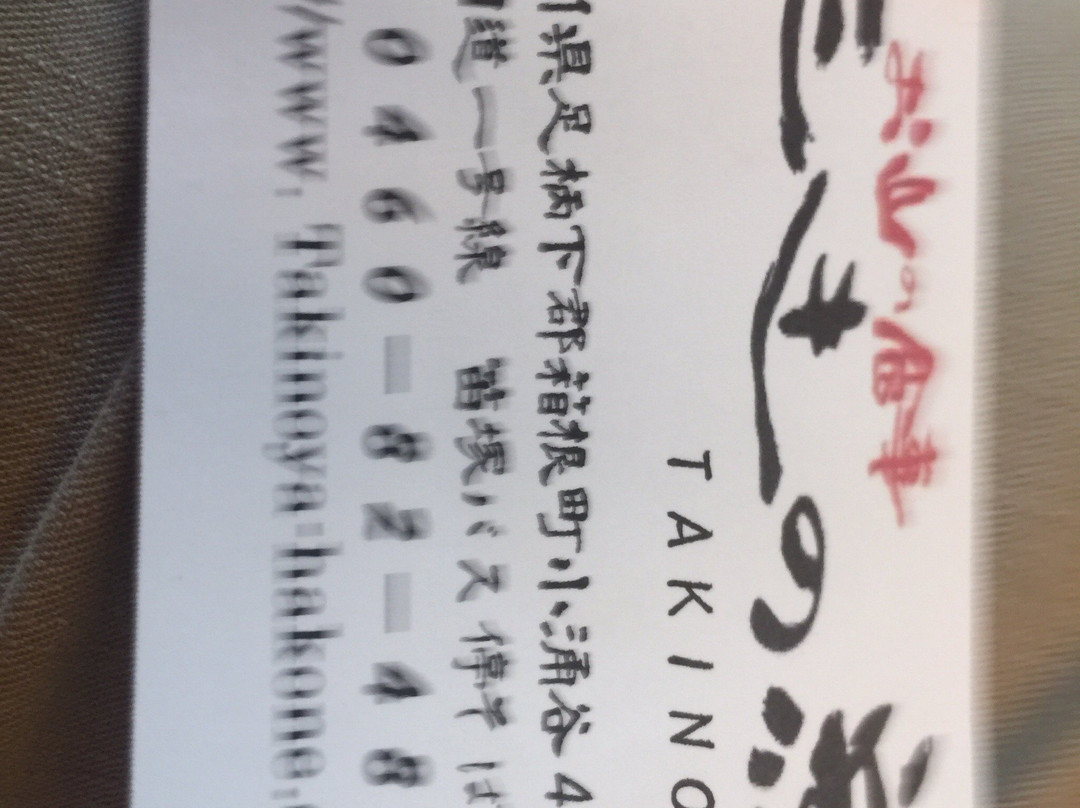 火山の居事
たきの湯
TAKINO
県足柄下郡箱根町小涌谷4
道一号線 笛塚バス停そば
0460-82-48
/www.Takinoya-hakone.